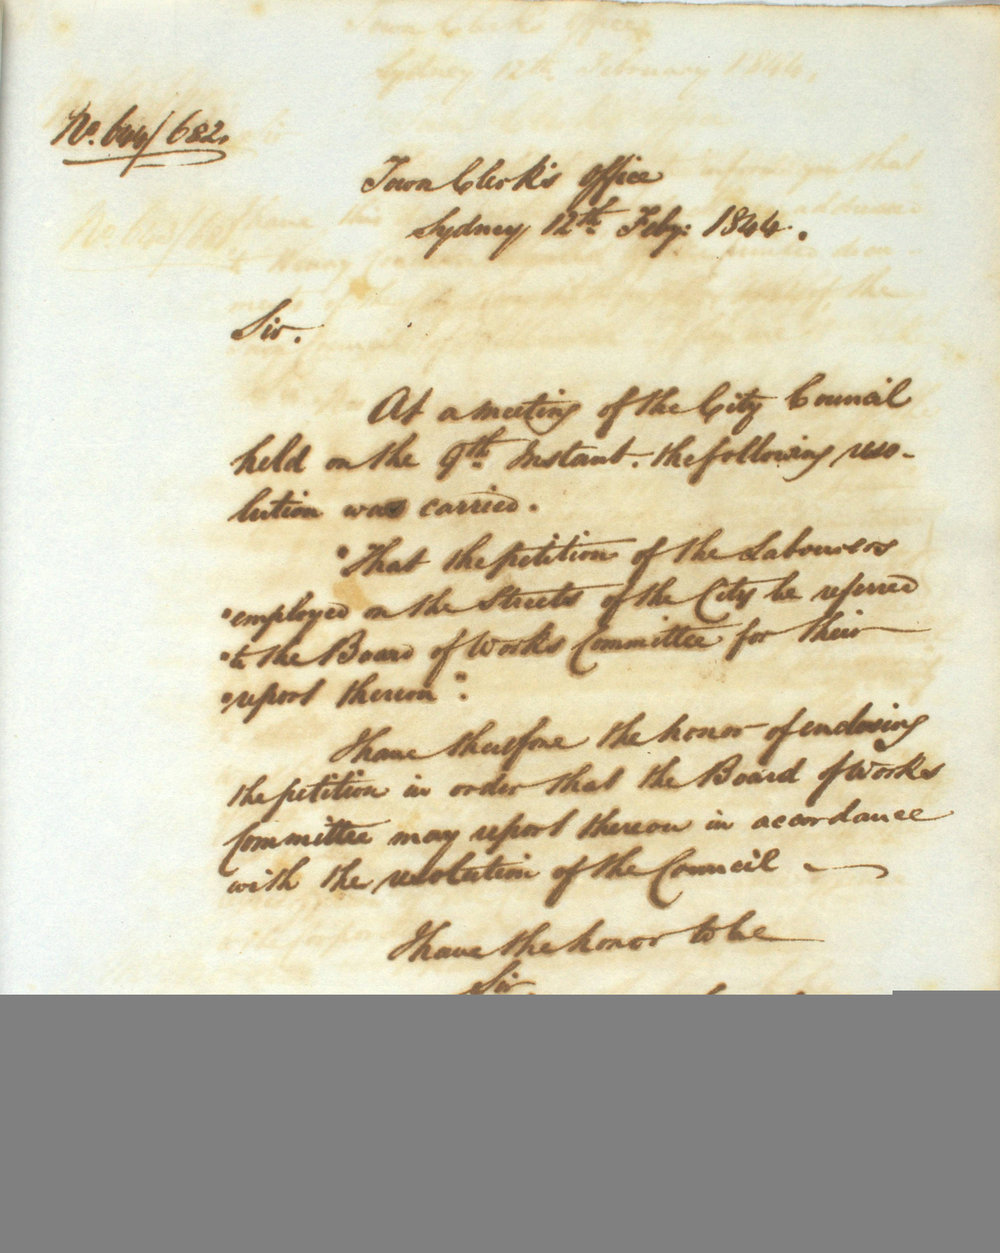 No. 644/682.
Town Clerk's Office
Sydney 12th. Feby: 1844.
Sir.
At a meeting of the City Council
held on the 9th. Instant. the following reso-
lution was carried.
"That the petition of the Labourers
"employed on the Streets of the City be referred
"to the Board of Works Committee for their
"report thereon".
I have therefore the honor of enclosing
the petition in order that the Board of Works
Committee may report thereon in accordance
with the resolution of the Council
I have the honor to be
Sir